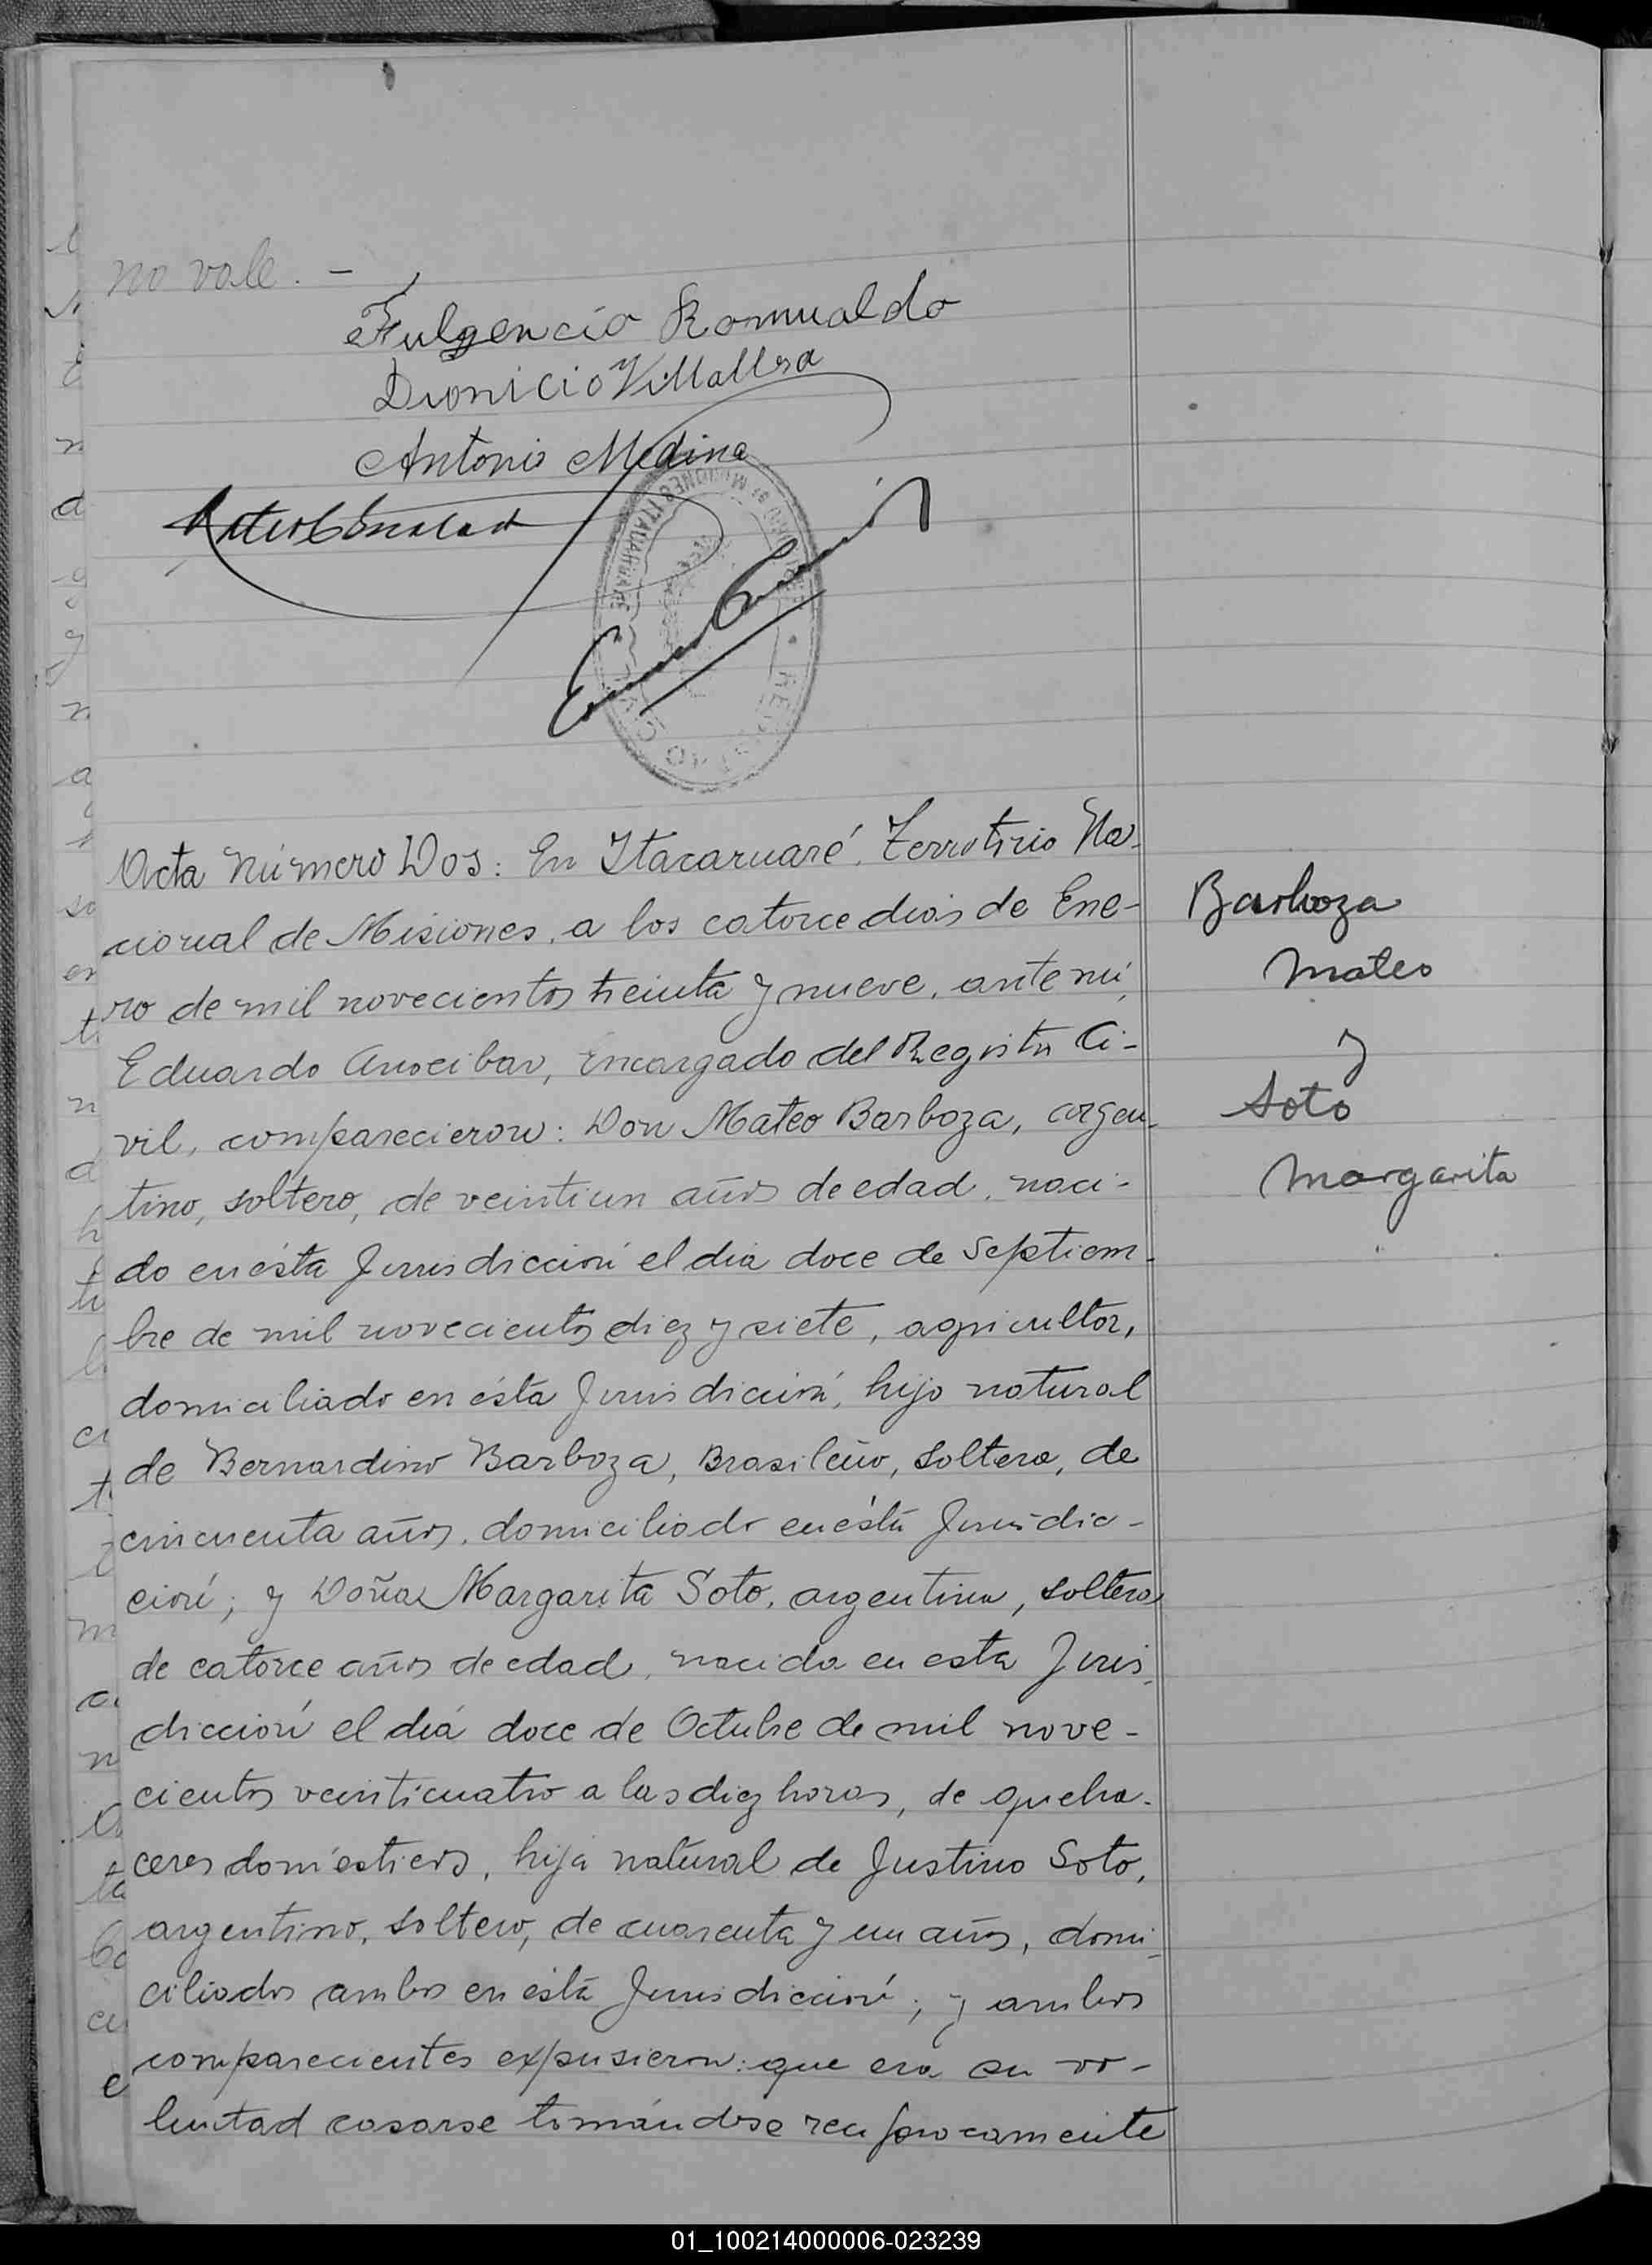 no vale. -
Fulgencio Romualdo
Dionicio Villalba
Antonio Medina
REGISTRO CIVIL
Acta Número Dos: En Itacaruaré, Territirio Na-
cional de Misiones, a los catorce dias de Ene-
ro de mil novecientos treinta y nueve, ante mi,
Eduardo Arocibar, Encargado del Registro Ci-
vil, comparecieron: Don Mateo Barboza, argen-
tino, soltero, de veintiun años de edad, naci-
do en ésta Jurisdicción el dia doce de Septiem-
bre de mil novecientos diez y siete, agricultor,
domiciliado en ésta Jurisdicción, hijo natural
de Bernardino Barboza, Brasileño, soltero, de
cincuenta años, domiciliado en ésta Jurisdic-
ción; y Doña Margarita Soto, argentina, soltera
de catorce años de edad, nacida en esta Juris-
dicción el día doce de Octubre de mil nove-
cientos veinticuatro a las diez horas, de queha-
ceres domésticos, hija natural de Justino Soto,
argentino, soltero, de cuarenta y un años, domi-
ciliados ambos en ésta Jurisdicción; y ambos
comparecientes expusieron: que era su vo-
luntad casarse tomándose reciprocamente
Barboza
Mateo
y
Soto
Margarita
01_100214000006-023239